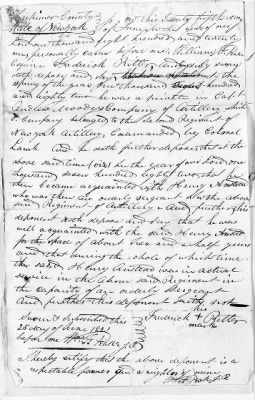 Herkimer County
State of New York
on this twenty fifth day
of June one thousand eight hundred and twenty
personally came before me William H
Esquire Frederick Ritter and being duly sworn
doth depose and say that about the
spring of the year one thousand hundred
and eighty two he was a private in Capt
Andrew Moodys Company of Artillery which
Company belonged to the Second Regiment of
New york Artillery, Commanded by Colonel
Lamb and he doth further depose that at the
above said time (viz) in the year of our Lord one
thousand seven hundred eighty two that
then became acquainted with Henry Anstead
who was then an orderly sergeant in the above
said Regiment of Artillery and further this
deponent doth depose and say that he was
well acquainted with the said Henry Anstead
for the space of about two and a half years
and that during the whole of which time
the said Henry Anstead was in actual
service in the above said Regiment in
the Capacity of an orderly Sergeant
And further this deponent saith not
Sworn & Subscribed this
25 day of June 1821
before me
his
Frederick X Ritter
mark
I hereby certify that the above deponent is a
respectable farmer and a neighbor of mine